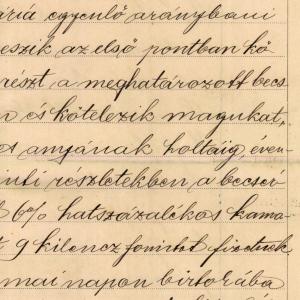 ária egyenlő aránybani
eszik az első pontban kö
részt a meghatározott becs
n és kötelezik magukat,
os anyjának holtaig, éven
inti részletekben a becsér
6% hatszázalékos kama
t 9 kilencz forintot fizetnek
mai napon birtokába